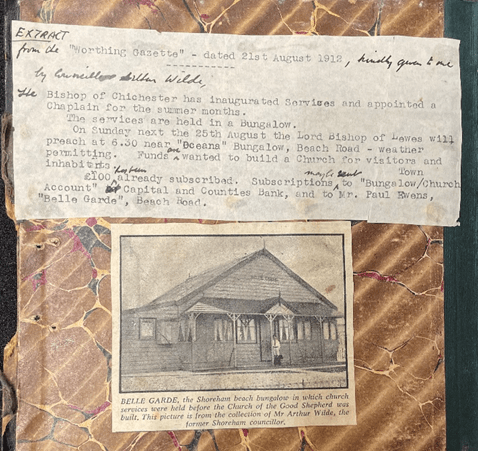 EXTRACT
from the "Worthing Gazette" - dated 21st August 1912, kindly given to me
by Councillor Arthur Wilde,
The Bishop of Chichester has inaugurated Services and appointed a
Chaplain for the summer months.
The services are held in a Bungalow.
On Sunday next the 25th August the Lord Bishop of Lewes will
preach at 6.30 near "Oceana" Bungalow, Beach Road - weather
permitting. Funds are wanted to build a Church for visitors and
inhabitants. Town
£100 has been already subscribed. Subscriptions may be sent to "Bungalow/Church
Account" at Capital and Counties Bank, and to Mr. Paul Ewens,
"Belle Garde", Beach Road.
BELLE GARDE, the Shoreham beach bungalow in which church
services were held before the Church of the Good Shepherd was
built. This picture is from the collection of Mr Arthur Wilde, the
former Shoreham councillor.